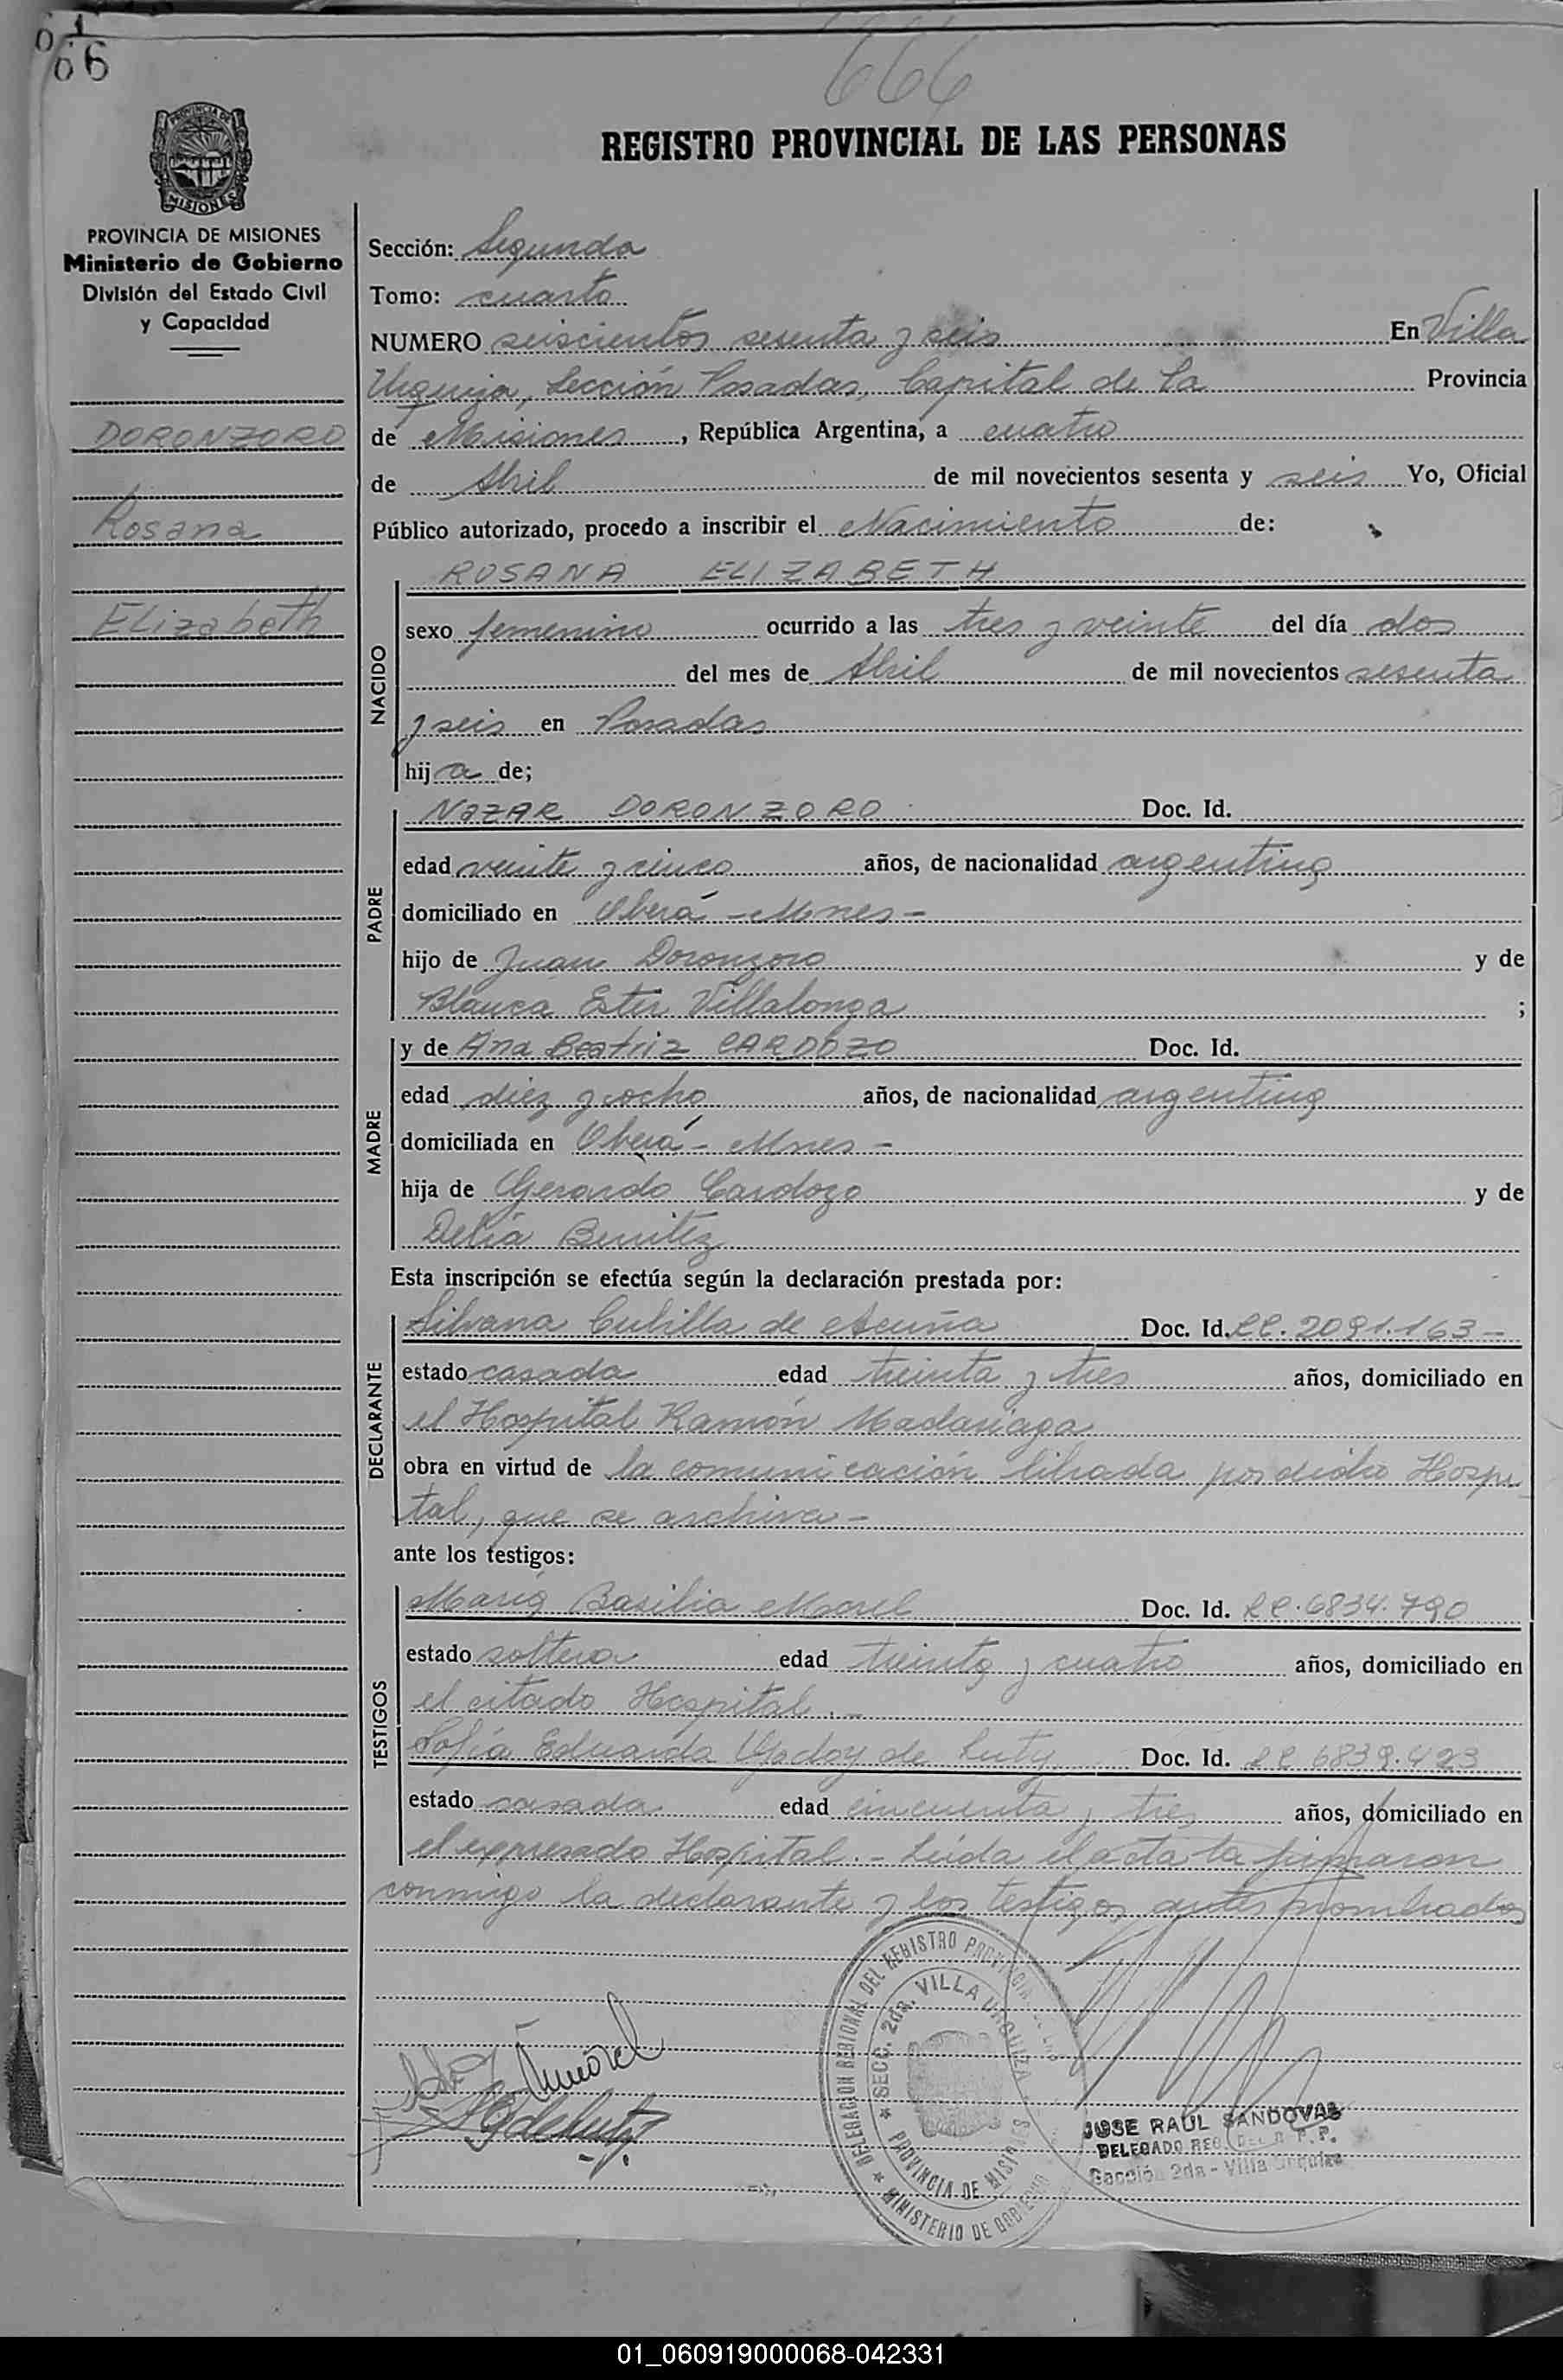 666
REGISTRO PROVINCIAL DE LAS PERSONAS
PROVINCIA DE MISIONES
Ministerio de Gobierno
División del Estado Civil
y Capacidad
DORONZORO
Rosana
Elizabeth
Sección: Segunda
Tomo: cuarto
NUMERO seiscientos sesenta y seis En Villa
Urquiza, Sección Posadas, Capital de la Provincia
de Misiones, República Argentina, a cuatro
de Abril de mil novecientos sesenta y seis Yo, Oficial
Público autorizado, procedo a inscribir el Nacimiento de:
NACIDO
ROSANA ELIZABETH
sexo femenino ocurrido a las tres y veinte del día dos
del mes de Abril de mil novecientos sesenta
y seis en Posadas
hija de;
PADRE
NAZAR DORONZORO Doc. Id.
edad veinte y cinco años, de nacionalidad argentina
domiciliado en Oberá - Mnes -
hijo de Juan Doronzoro y de
Blanca Ester Villalonga ;
MADRE
y de Ana Beatriz CARDOZO Doc. Id.
edad diez y ocho años, de nacionalidad argentina
domiciliada en Oberá - Mnes -
hija de Gerardo Cardozo y de
Delia Benitez
Esta inscripción se efectúa según la declaración prestada por:
DECLARANTE
Silvana Cubilla de Acuña Doc. Id. LC. 2091.163 -
estado casada edad treinta y tres años, domiciliado en
el Hospital Ramón Madariaga
obra en virtud de la comunicación librada por dicho Hospi
tal, que se archiva -
ante los testigos:
TESTIGOS
María Basilia Morel Doc. Id. LC. 6834.790
estado soltera edad treinta y cuatro años, domiciliado en
el citado Hospital. -
Sofía Eduarda Godoy de Luty Doc. Id. LC 6839.423
estado casada edad cincuenta y tres años, domiciliado en
el expresado Hospital. - Leída el acta la firmaron
conmigo la declarante y los testigos antes nombrados
DELEGACION REGIONAL DEL REGISTRO PROVINCIAL
SECC. 2da. VILLA URQUIZA
PROVINCIA DE MISIONES
MINISTERIO DE GOBIERNO
JOSE RAUL SANDOVAL
DELEGADO REG. DEL R. P. P.
Sección 2da - Villa Urquiza
01_060919000068-042331